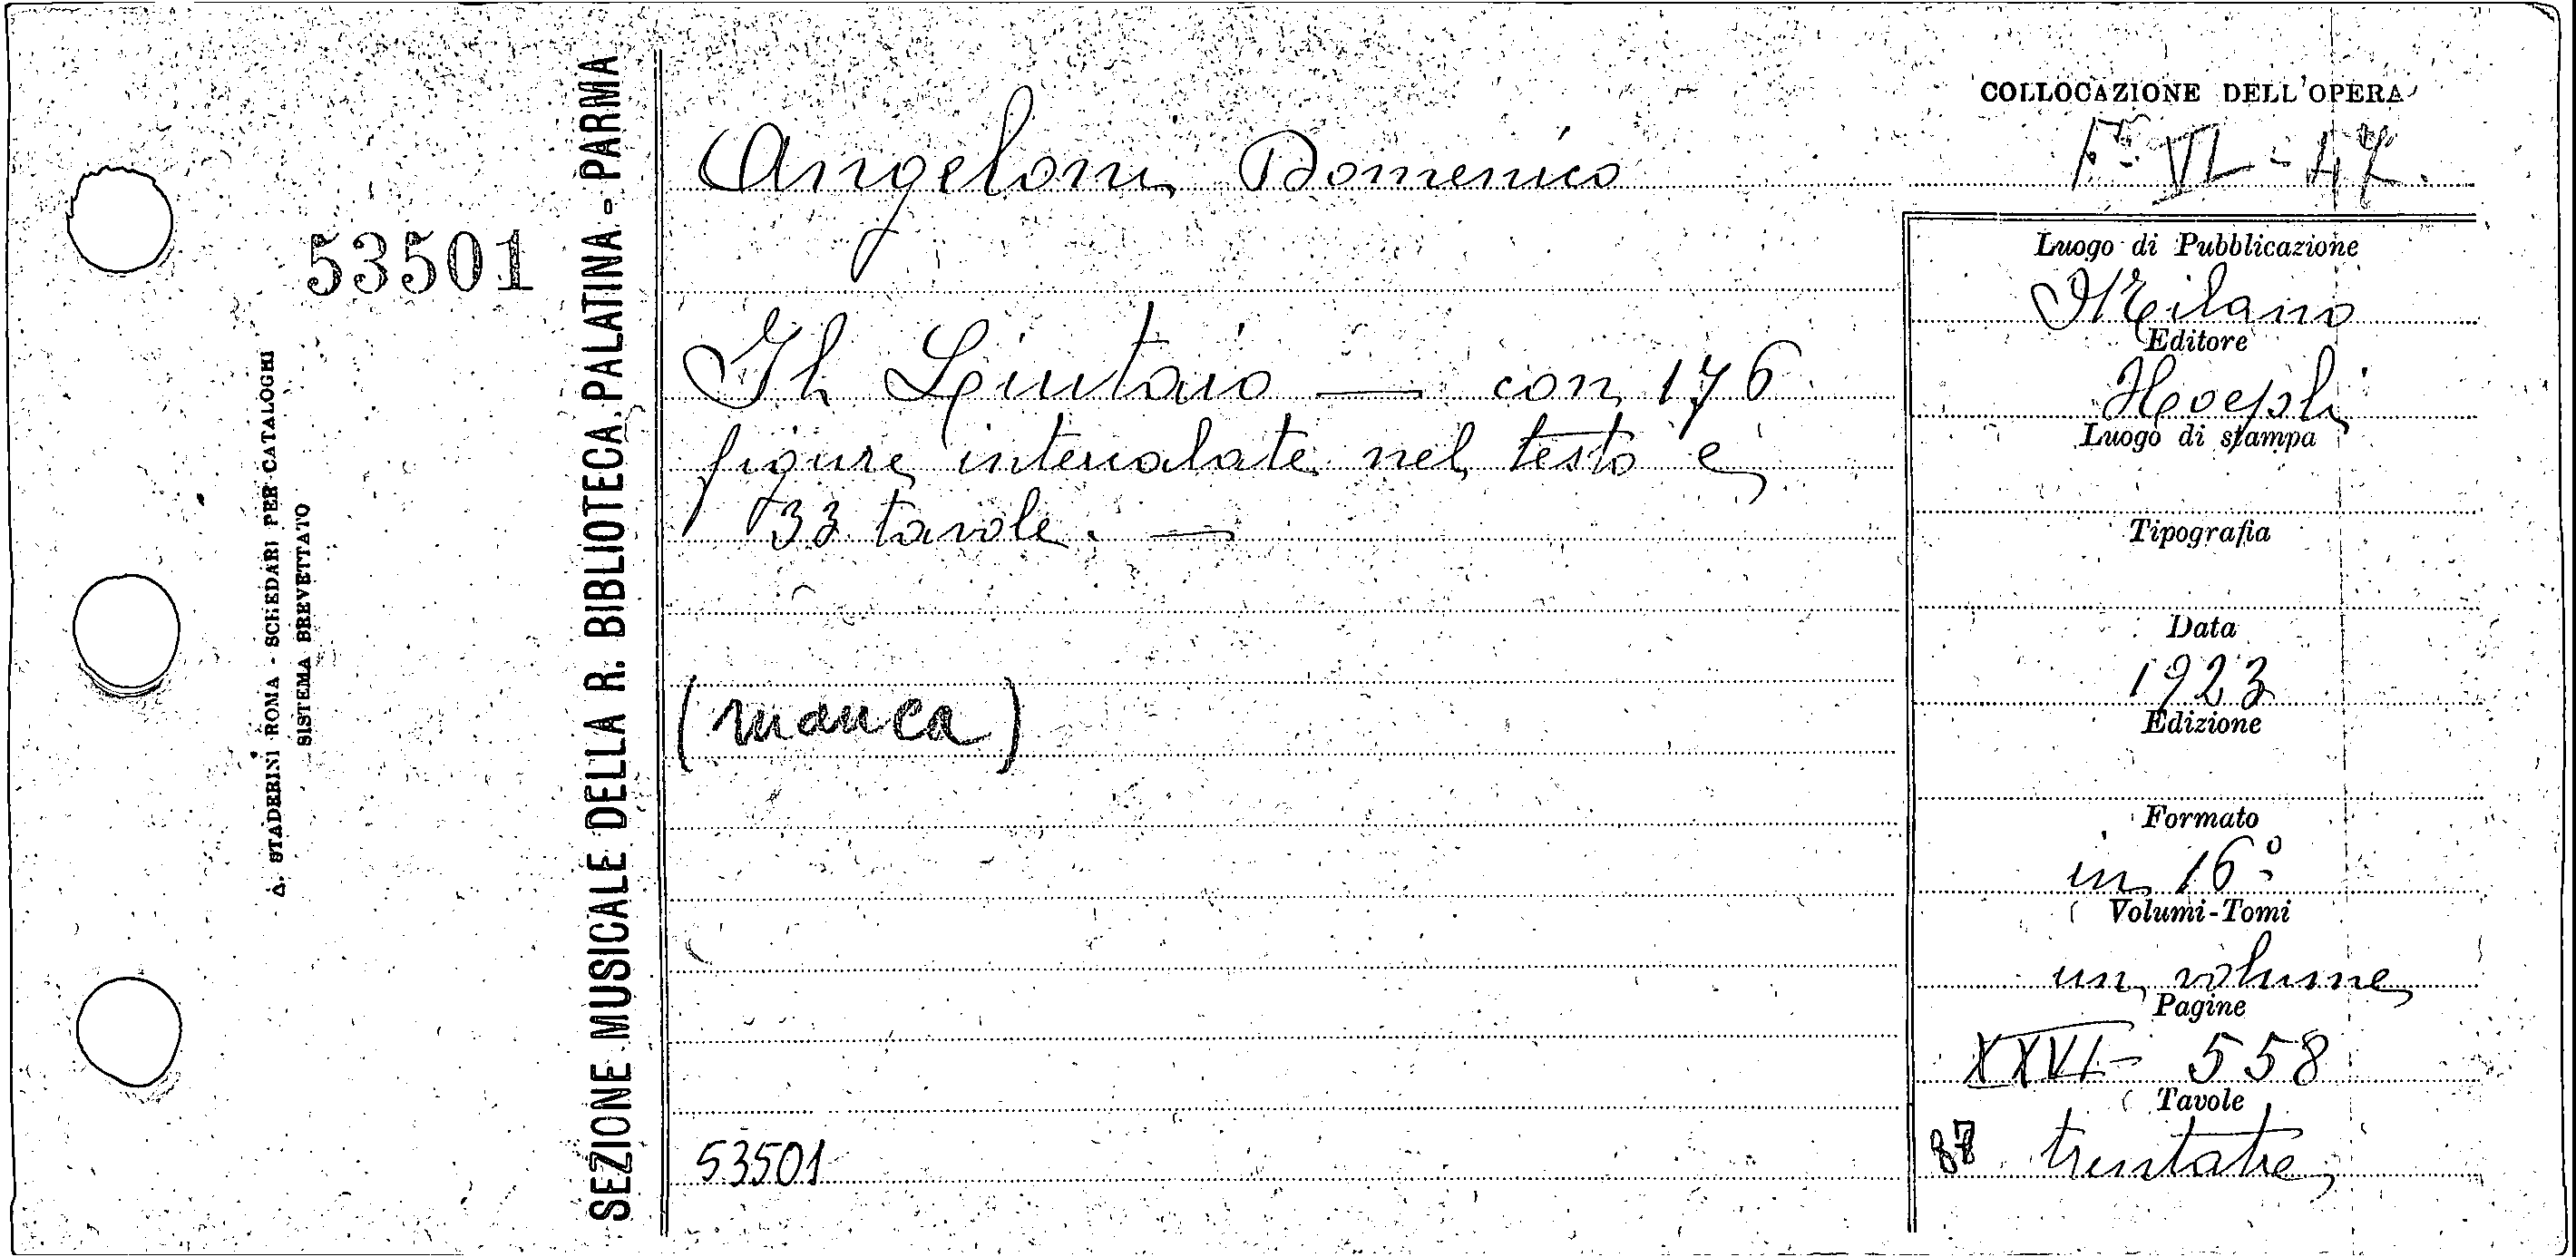 53501
A. STADERINI ROMA - SCHEDARI PER CATALOGHI
SISTEMA BREVETTATO
SEZIONE MUSICALE DELLA R. BIBLIOTECA PALATINA - PARMA
Angeloni Domenico
Il Liutaio — con 176
figure intercalate nel testo e
33 tavole. —
(manca)
53501
COLLOCAZIONE DELL'OPERA
VI - 47.
Luogo di Pubblicazione
Milano
Editore
Hoepli
Luogo di stampa
Tipografia
Data
1923
Edizione
Formato
in 16º
Volumi-Tomi
un volume
Pagine
XXVI - 558
Tavole
87 trentatre